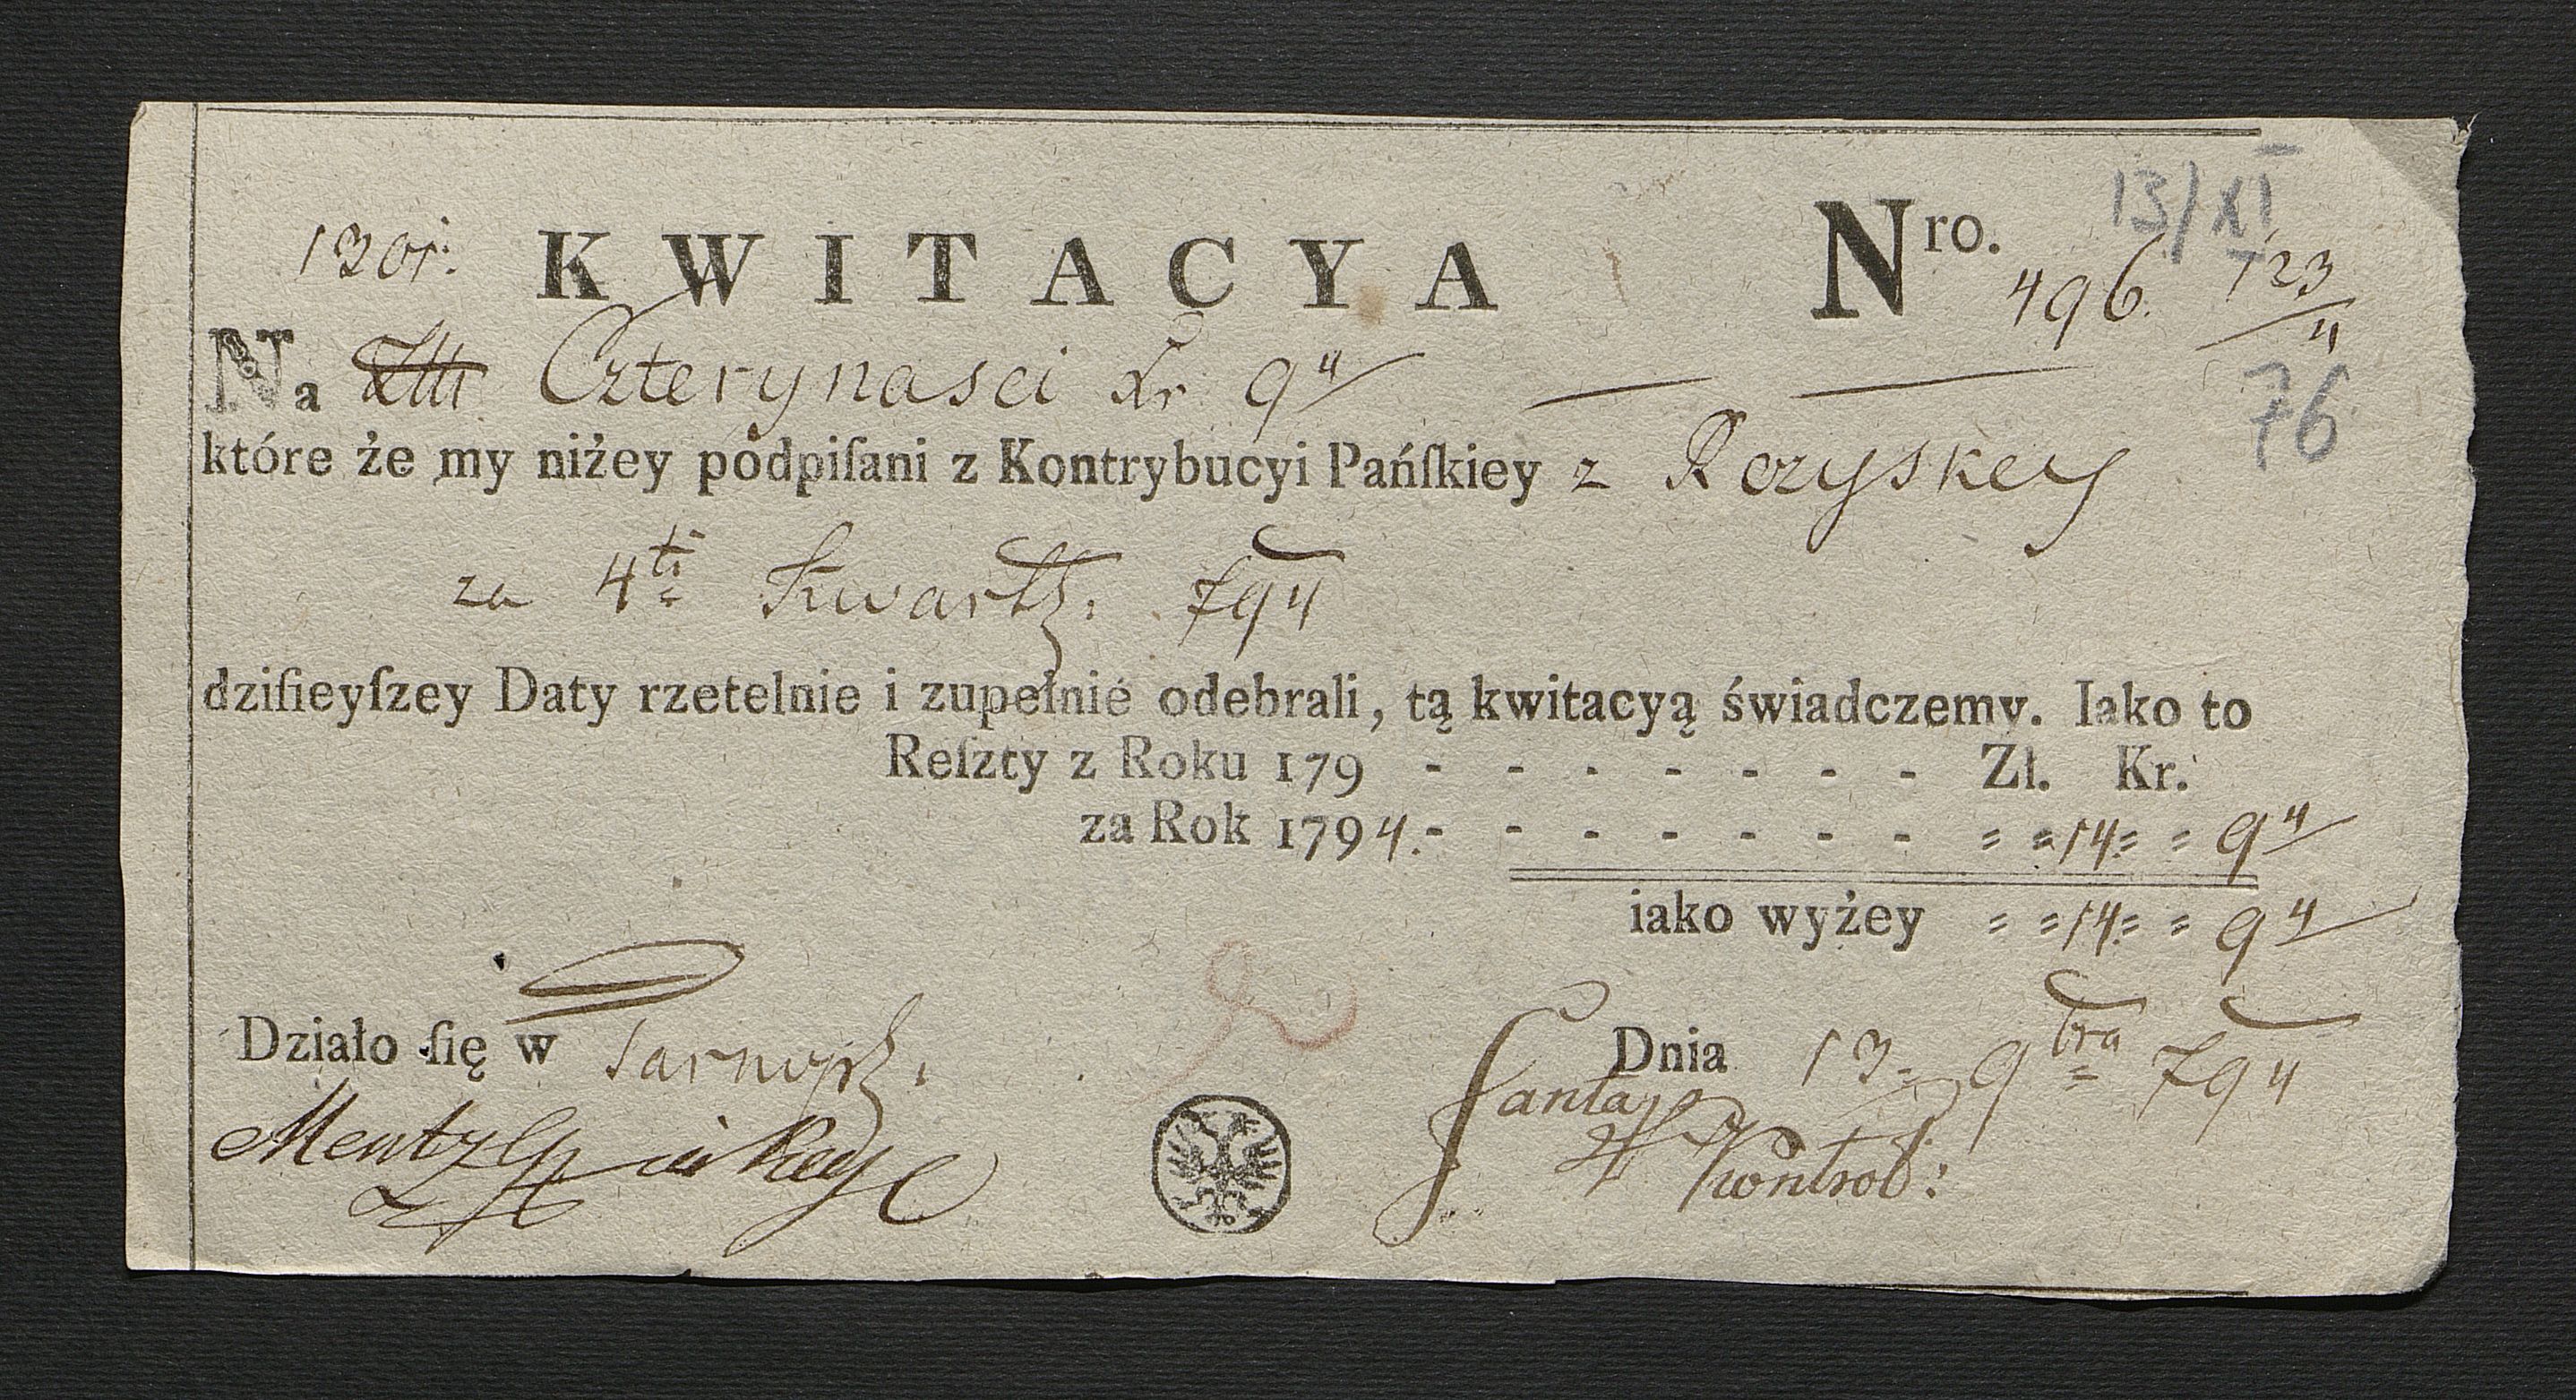 13/XI
130r. KWITACYA Nro. 496. 123/4
Na Złłt Czterynasci Xr 9 4/
76
które że my niżey podpiſani z Kontrybucyi Pańſkiey z Rozyskey
za 4ti Kwartł: 794
dziſieyſzey Daty rzetelnie i zupełnie odebrali, tą kwitacyą świadczemy. Iako to
Reſzty z Roku 179 - - - - - - - Zł. Kr.
za Rok 1794. - - - - - - - = = 14 = = 9 4/
iako wyżey = = 14 = = 9 4/
Działo ſię w Tarnop: Dnia 13. 9bra 794
Kontrol: